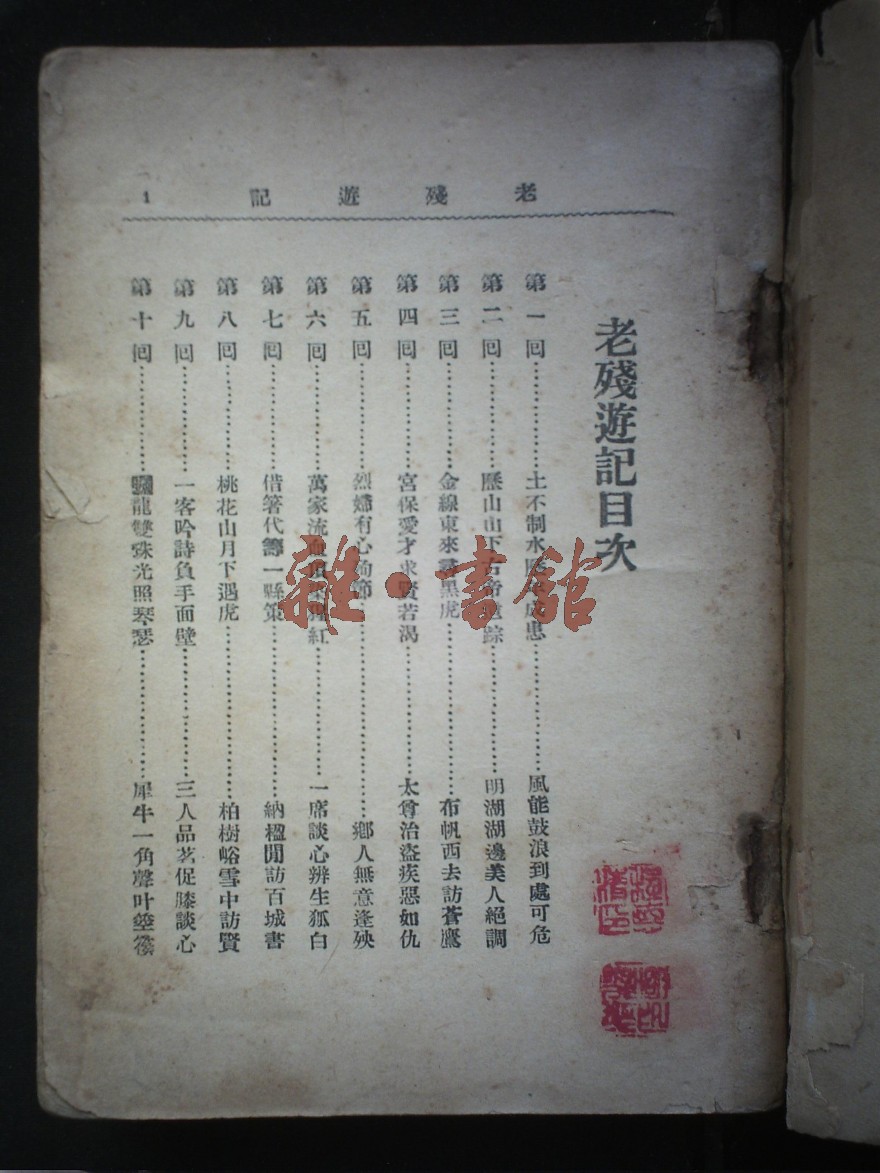 老殘遊記 1
老殘遊記目次
第一回……………土不制水歷年成患……………風能鼓浪到處可危
第二回……………歷山山下古帝遺踪……………明湖湖邊美人絕調
第三回……………金線東來尋黑虎……………布帆西去訪蒼鷹
第四回……………宮保愛才求賢若渴……………太尊治盜疾惡如仇
第五回……………烈婦有心殉節……………鄉人無意逢殃
第六回……………萬家流血頂染猩紅……………一席談心辨生狐白
第七回……………借箸代籌一縣策……………納楹閒訪百城書
第八回……………桃花山月下遇虎……………柏樹峪雪中訪賢
第九回……………一客吟詩負手面壁……………三人品茗促膝談心
第十回……………驪龍雙珠光照琴瑟……………犀牛一角聲叶箜篌
雜·書館